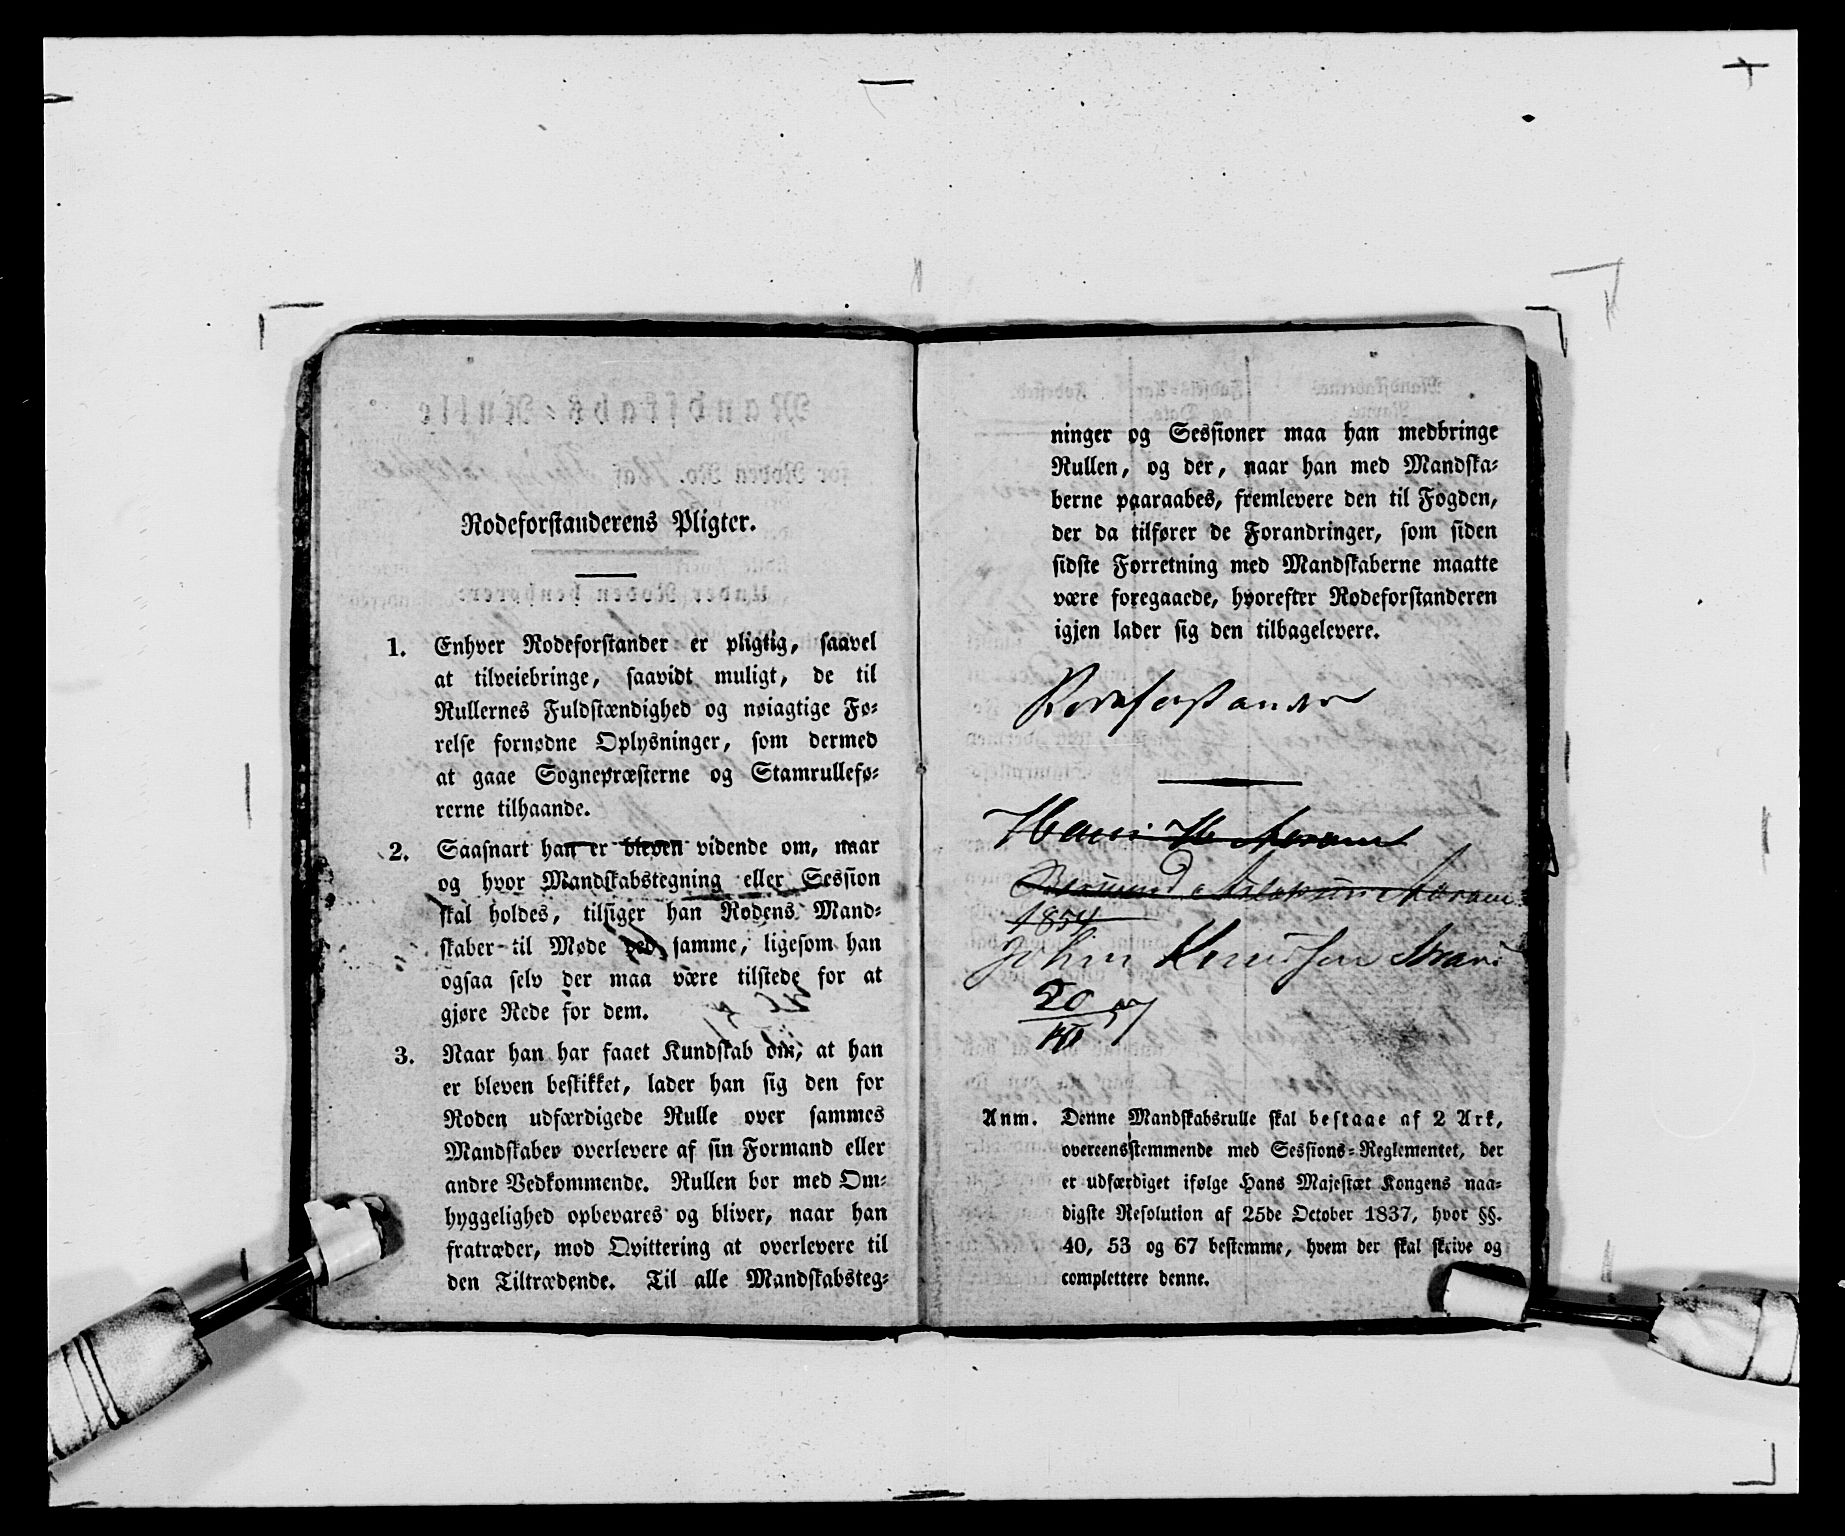 Rodeforstanderens Pligter.
1. Enhver Rodeforstander er pligtig, saavel
at tilveiebringe, saavidt muligt, de til
Rullernes Fuldstændighed og nøiagtige Fø-
relse fornødne Oplysninger, som dermed
at gaae Sognepræsterne og Stamrullefø-
rerne tilhaande.
2. Saasnart han er bleven vidende om, naar
og hvor Mandskabstegning eller Session
skal holdes, tilsiger han Rodens Mand-
skaber til Møde ved samme, ligesom han
ogsaa selv der maa være tilstede for at
gjøre Rede for dem.
3. Naar han har faaet Kundskab om, at han
er bleven beskikket, lader han sig den for
Roden udfærdigede Rulle over sammes
Mandskaber overlevere af sin Formand eller
andre Vedkommende. Rullen bør med Om-
hyggelighed opbevares og bliver, naar han
fratræder, mod Qvittering at overlevere til
den Tiltrædende. Til alle Mandskabsteg-
ninger og Sessioner maa han medbringe
Rullen, og der, naar han med Mandska-
berne paaraabes, fremlevere den til Fogden,
der da tilfører de Forandringer, som siden
sidste Forretning med Mandskaberne maatte
være foregaaede, hvorefter Rodeforstanderen
igjen lader sig den tilbagelevere.
Rodeforstander
Hans H
1854
John Knudsen
20 57
Anm. Denne Mandskabsrulle skal bestaae af 2 Ark,
overeensstemmende med Sessions-Reglementet, der
er udfærdiget ifølge Hans Majestæt Kongens naa-
digste Resolution af 25de October 1837, hvor §§.
40, 53 og 67 bestemme, hvem der skal skrive og
complettere denne.